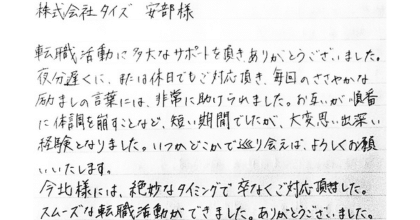 株式会社タイズ 安部様
転職活動に多大なサポートを頂きありがとうございました。
夜分遅くに、または休日でもご対応頂き、毎回のささやかな
励ましの言葉には、非常に助けられました。お互いが順番
に体調を崩すことなど、短い期間でしたが、大変思い出深い
経験となりました。いつかどこかで巡り会えば、よろしくお願
いいたします。
今北様には、絶妙なタイミングで卒なくご対応頂きました。
スムーズな転職活動ができました。ありがとうございました。